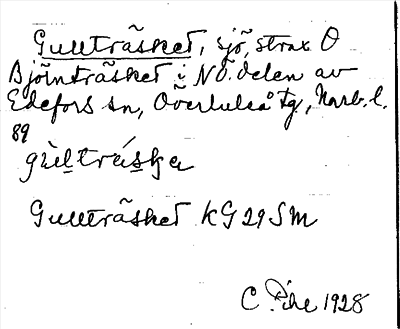 Gullträsket, sjö, strax O
Björnträsket i NÖ. delen av
Edefors sn, Överluleå tg, Norrb. l.
89
gùl̲trás̲ka
Gullträsket KG 29 SM
C. Pihl 1928